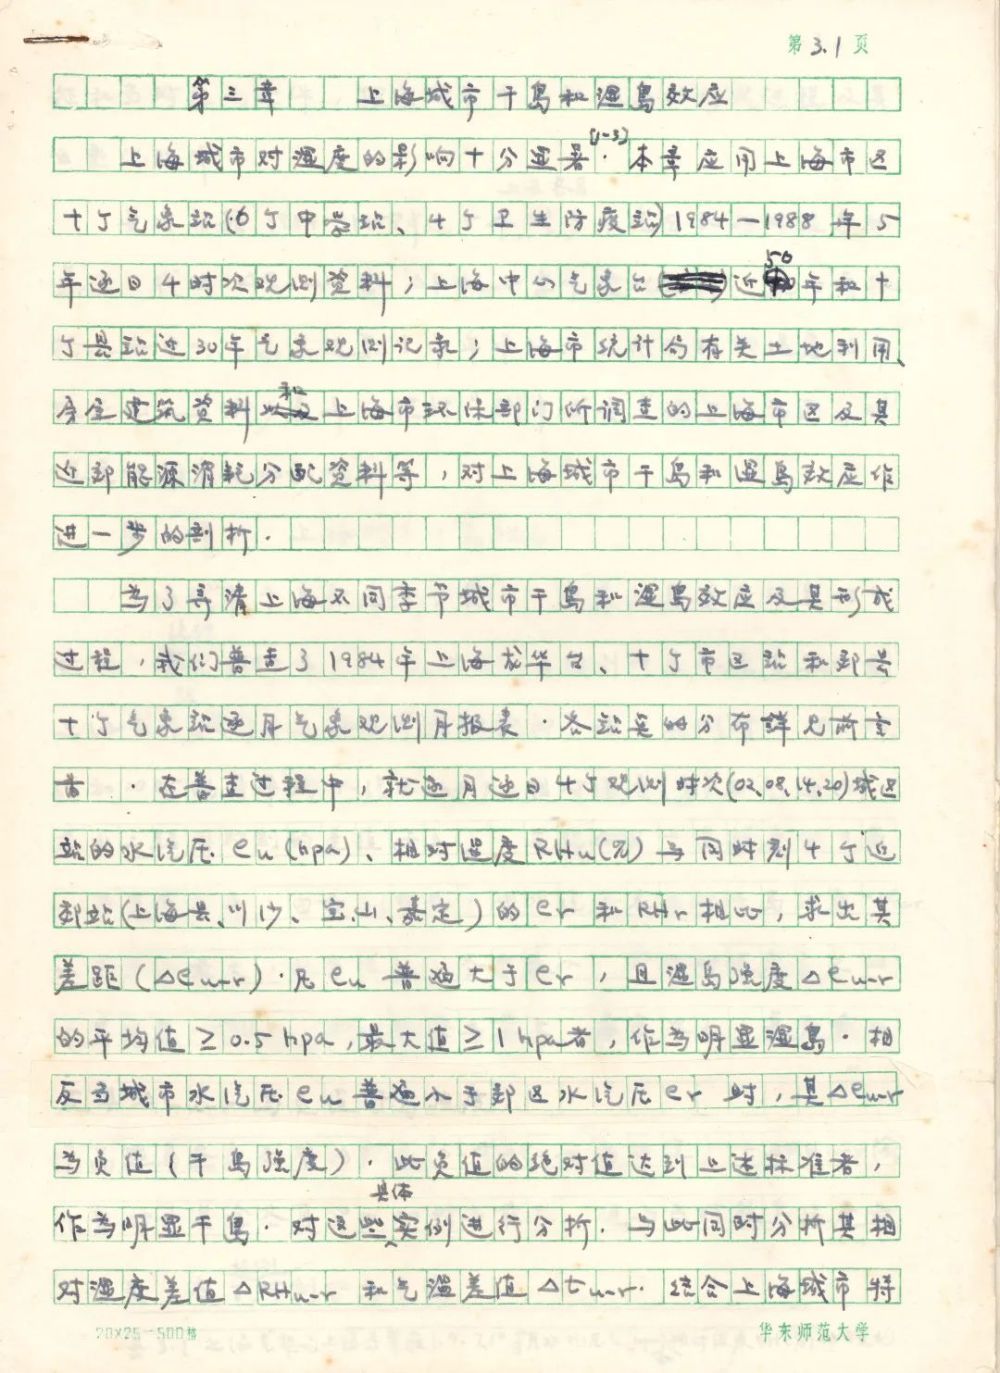 第 3.1 页
第三章 上海城市干岛和湿岛效应
上海城市对湿度的影响十分显著(1-3)。本章应用上海市区
十个气象站(6个中学站、4个卫生防疫站)1984—1988年5
年逐日4时次观测资料；上海中心气象台近50年和十
个县站近30年气象观测记录；上海市统计局有关土地利用、
房屋建筑资料和上海市环保部门所调查的上海市区及其
近郊能源消耗分配资料等，对上海城市干岛和湿岛效应作
进一步的剖析.
为了弄清上海不同季节城市干岛和湿岛效应及其形成
过程，我们普查了1984年上海龙华台、十个市区站和郊县
十个气象站逐月气象观测月报表.各站点的分布详见前言
.在普查过程中，就逐月逐日4个观测时次(02、08、14、20)城区
站的水汽压eu(hpa)、相对湿度RHu(%)与同时刻4个近
郊站(上海县、川沙、宝山、嘉定)的er和RHr相比，求出其
差距(△eu-r).凡eu普遍大于er，且湿岛强度△eu-r
的平均值≥0.5hpa，最大值≥1hpa者，作为明显湿岛.相
反当城市水汽压eu普遍小于郊区水汽压er时，其△eu-r
为负值(干岛强度).此负值的绝对值达到上述标准者，
作为明显干岛.对这些具体实例进行分析.与此同时分析其相
对湿度差值△RHu-r和气温差值△tu-r.结合上海城市特
20×25=500格 华东师范大学